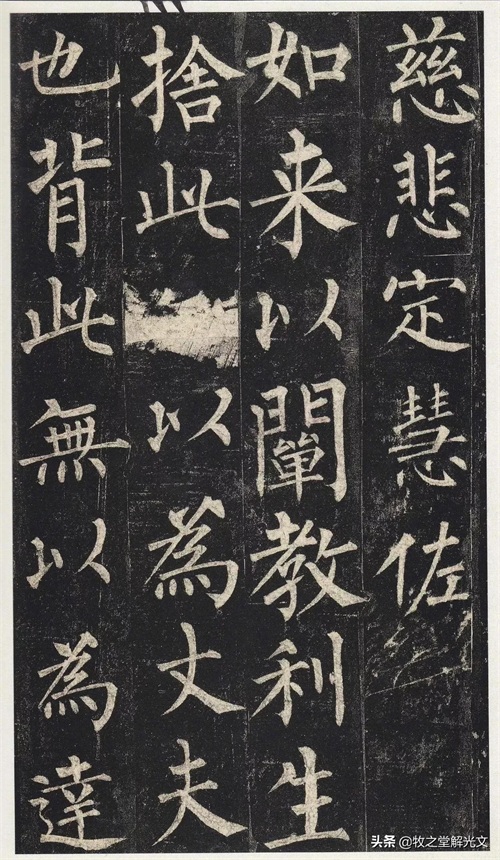 慈悲定慧佐
如来以闡教利生
捨此以為丈夫
也背此無以為達
头条 @牧之堂解光文